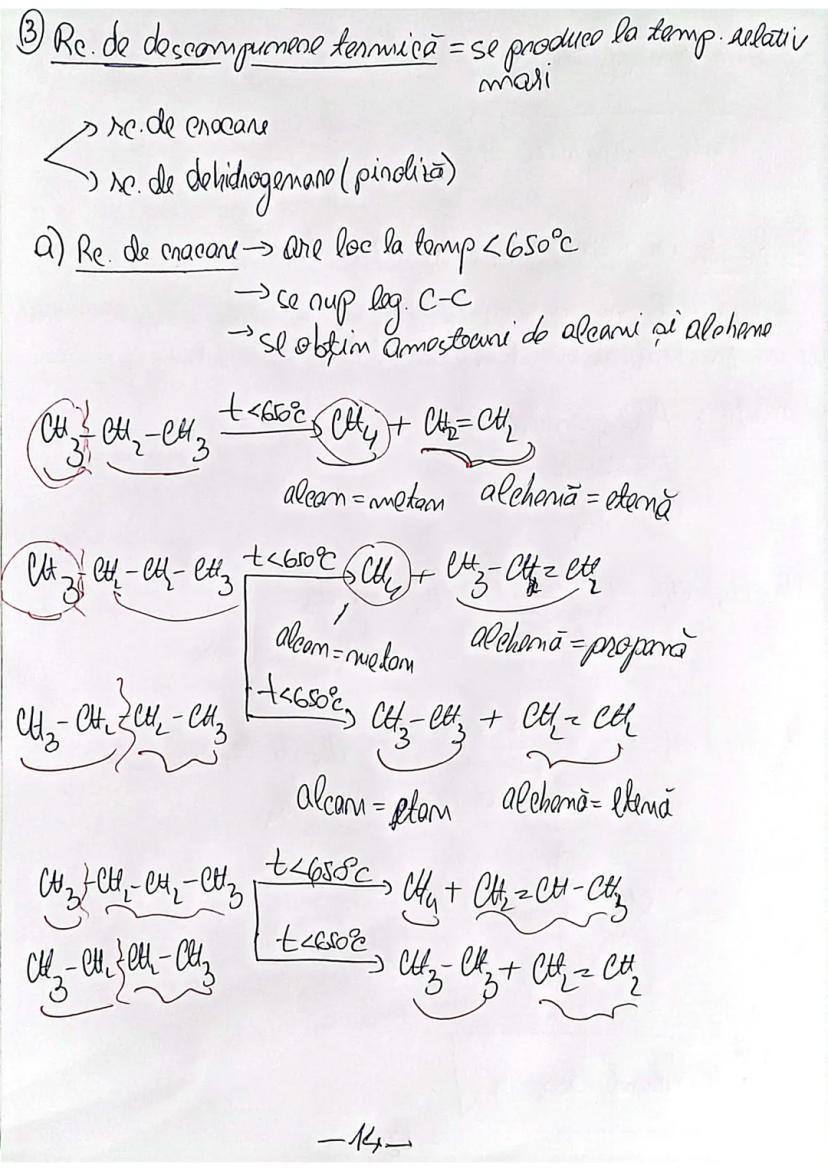 ③ Rc. de descompunere termică = se produce la temp. relativ
mari
→ rc. de cracare
→ rc. de dehidrogenare (piroliză)
a) Rc. de cracare → are loc la temp < 650°C
→ se rup leg. C-C
→ se obțin amestecuri de alcani și alchene
CH3 - CH2 - CH3 t<650°C → CH4 + CH2=CH2
alcan = metan alchenă = etenă
CH3 CH2 - CH2 - CH3 t<650°C → CH4 + CH3-CH=CH2
alcan = metan alchenă = propenă
CH3 - CH2 - CH2 - CH3 t<650°C → CH3-CH3 + CH2=CH2
alcan = etan alchenă = etenă
CH3 - CH2 - CH2 - CH3 t<650°C → CH4 + CH2=CH-CH3
CH3 - CH2 CH2 - CH3 t<650°C → CH3-CH3 + CH2=CH2
-14-